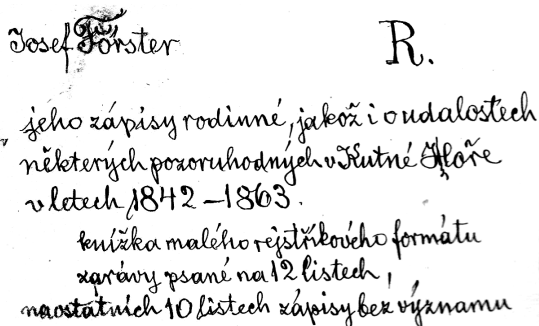 Josef Förster R.
jeho zápisy rodinné, jakož i o udalostech
některých pozoruhodných v Kutné Hoře
v letech 1842–1863.
knížka malého rejstříkového formátu
zprávy psané na 12 listech,
na ostatních 10 listech zápisy bez významu